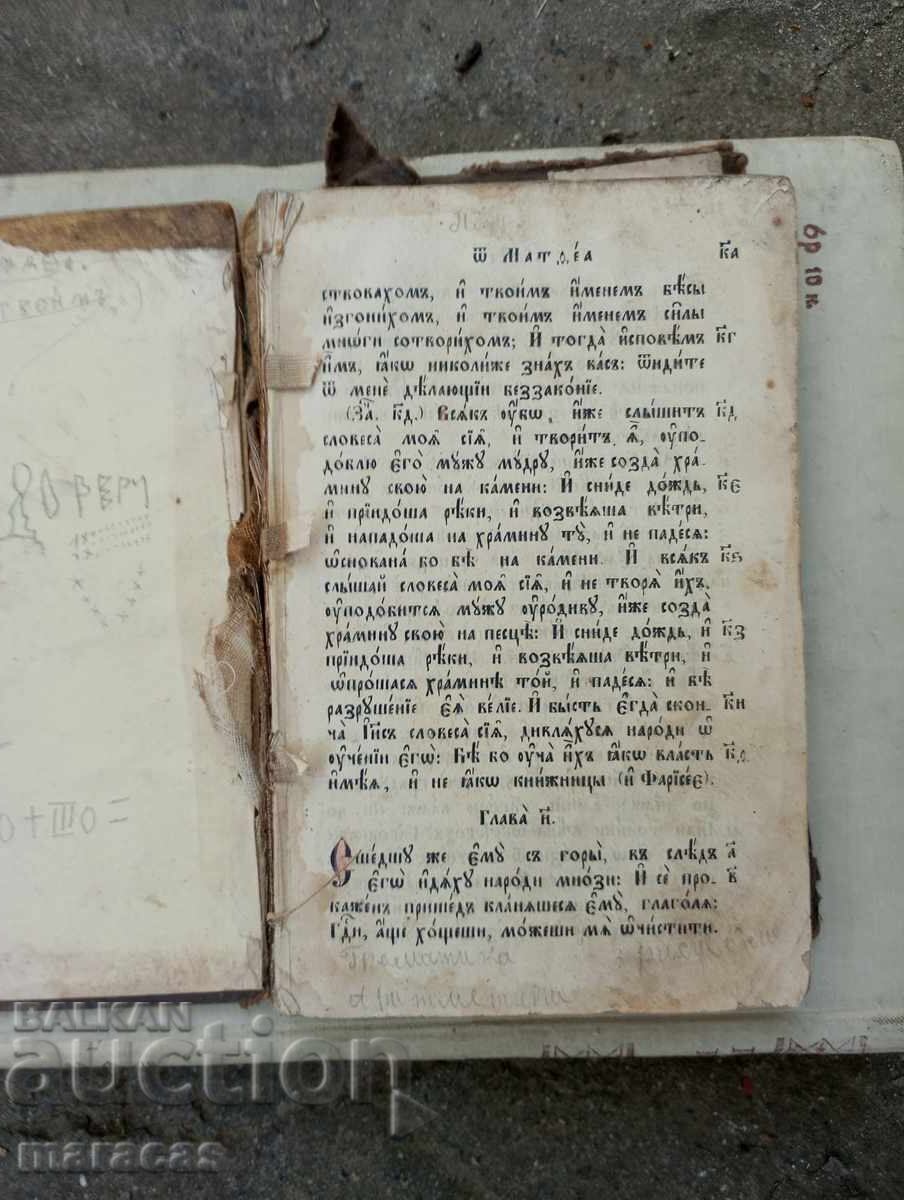 ѿ Матѳеа к҃а
ствовахомъ, и҆ твои́мъ и҆́менемъ бѣ́сы
и҆згони́хомъ, и҆ твои́мъ и҆́менемъ си̑лы
мнѡ́ги сотвори́хомъ; И҆ тогда̀ и҆сповѣ́мъ к҃г
и҆̀мъ, ꙗ҆́кѡ николи́же зна́хъ ва́съ: ѿиди́те
ѿ менє̀ дѣ́лающїи беззако́нїе.
(За҃. к҃д.) Всѧ́къ ᲂу҆̀бѡ, и҆́же слы́шитъ к҃д
словеса̀ моѧ҄ сїѧ҄, и҆ твори́тъ ѧ҆҄, ᲂу҆по-
до́блю є҆го̀ мꙋ́жꙋ мꙋ́дрꙋ, и҆́же созда̀ хра́-
минꙋ свою̀ на ка́мени: И҆ сни́де до́ждь, к҃є
и҆ прїидо́ша рѣ́ки, и҆ возвѣ́ѧша вѣ́три,
и҆ нападо́ша на хра́минꙋ тꙋ̀, и҆ не паде́сѧ:
ѡ҆снована́ бо бѣ̀ на ка́мени. И҆ всѧ́къ к҃ѕ
слы́шай словеса̀ моѧ҄ сїѧ҄, и҆ не творѧ̀ и҆́хъ,
ᲂу҆подо́битсѧ мꙋ́жꙋ ᲂу҆ро́дивꙋ, и҆́же созда̀
хра́минꙋ свою̀ на песцѣ̀: И҆ сни́де до́ждь, и҆ к҃з
прїидо́ша рѣ́ки, и҆ возвѣ́ѧша вѣ́три, и҆
ѡ҆про́шасѧ хра́минѣ то́й, и҆ паде́сѧ: и҆ бѣ̀
разрꙋше́нїе є҆ѧ̀ ве́лїе. И҆ бы́сть є҆гда̀ скон- к҃и
ча̀ І҆и҃съ словеса̀ сїѧ҄, дивлѧ́хꙋсѧ наро́ди ѡ҆
ᲂу҆че́нїи є҆гѡ̀: Бѣ́ бо ᲂу҆ча̀ и҆́хъ ꙗ҆́кѡ вла́сть к҃ѳ
и҆мѣ́ѧ, и҆ не ꙗ҆́кѡ кни́жницы (и҆ Фарїсе́є).
Глава̀ и҃.
Сше́дшꙋ же є҆мꙋ̀ съ горы̀, въ слѣ́дъ а҃
є҆гѡ̀ и҆дѧ́хꙋ наро́ди мно́зи: И҆ сѐ про- в҃
каже́нъ прише́дъ кла́нѧшесѧ є҆мꙋ̀, глаго́лѧ:
Гд҇и, а҆́ще хо́щеши, мо́жеши мѧ̀ ѡ҆чи́стити.
Граматика
Аритметика
вр 10 к
=ΟΙΙΙ+Ο
BALKAN
auction
maracas